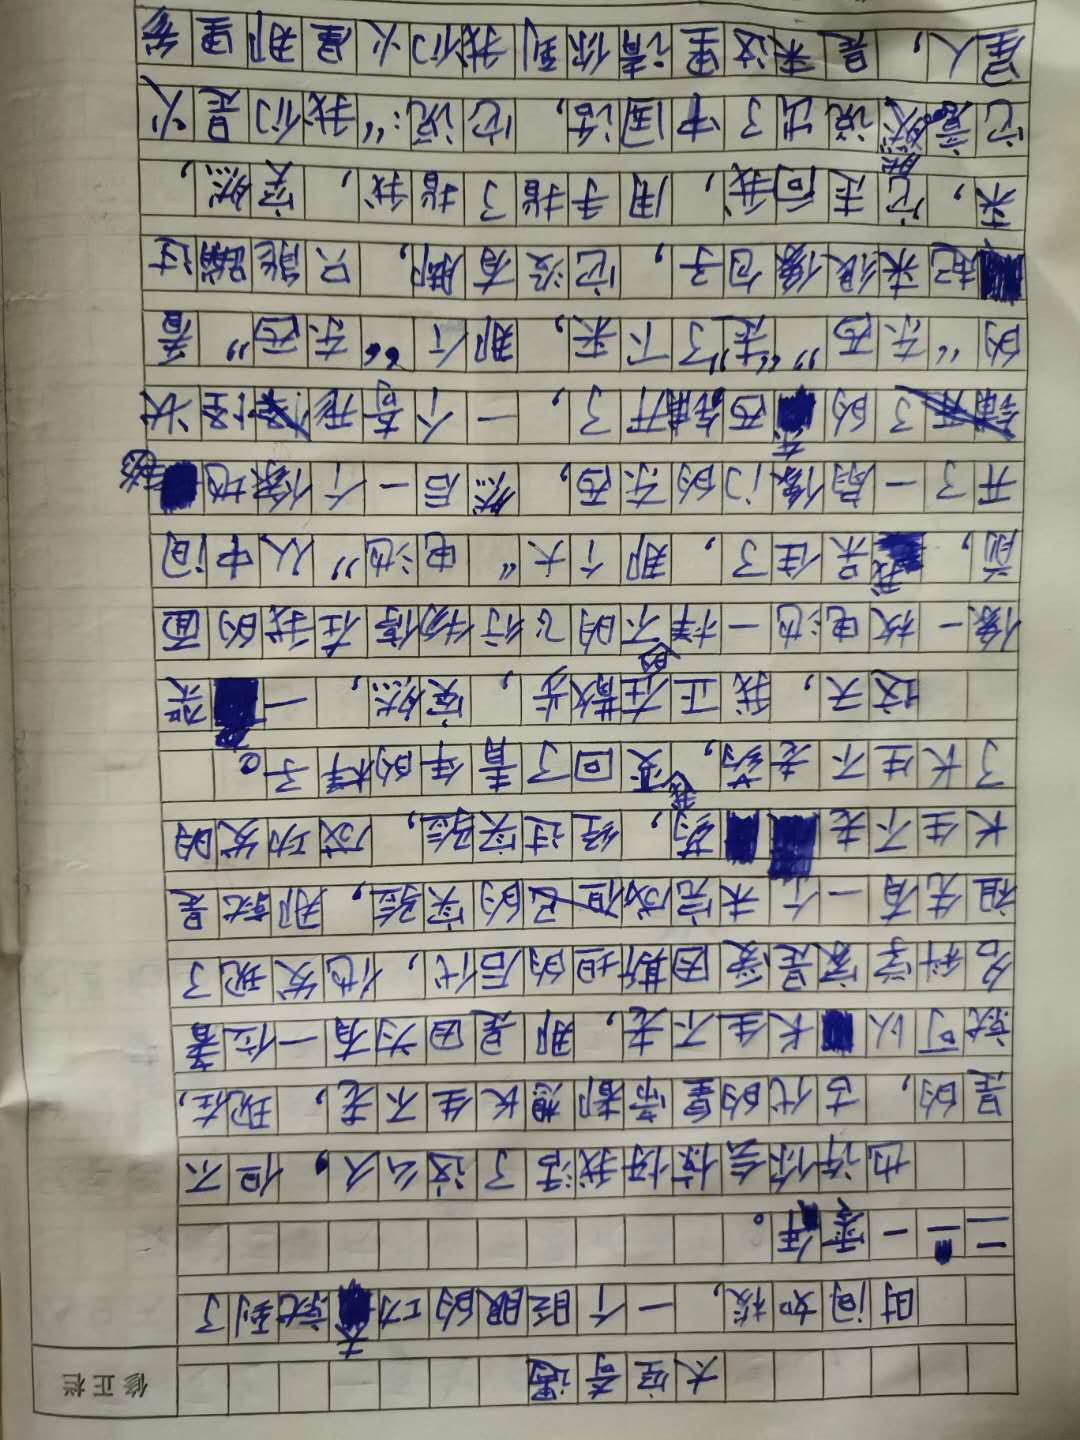 太空奇遇
修正栏
时间如梭，一个眨眼的功夫就到了
二一一零年。
也许你会惊讶我活了这么久，但不
是的，古代的皇帝都想长生不老，现在，
就可以长生不老，那是因为有一位著
名科学家是爱因斯坦的后代，他发现了
祖先有一个未完成的实验，那就是
长生不老药，经过实验，成功发的
了长生不老药，我变回了青年的样子。
这天，我正在散步，突然，一架
像一枚电池一样的不的飞行物停在我的面
前，我呆住了，那个大“电池”从中间
开了一扇像门的东西，然后一个像地毯
了的东西铺开了，一个奇形怪状
的“东西”“走”了下来，那个“东西”看
起来很像包子，它没有脚，只能蹦过
来，它走向我，用手指了指我，突然，
它竟然说出了中国话，它说：“我们是火
星人，是来这里请你到我们火星那里参